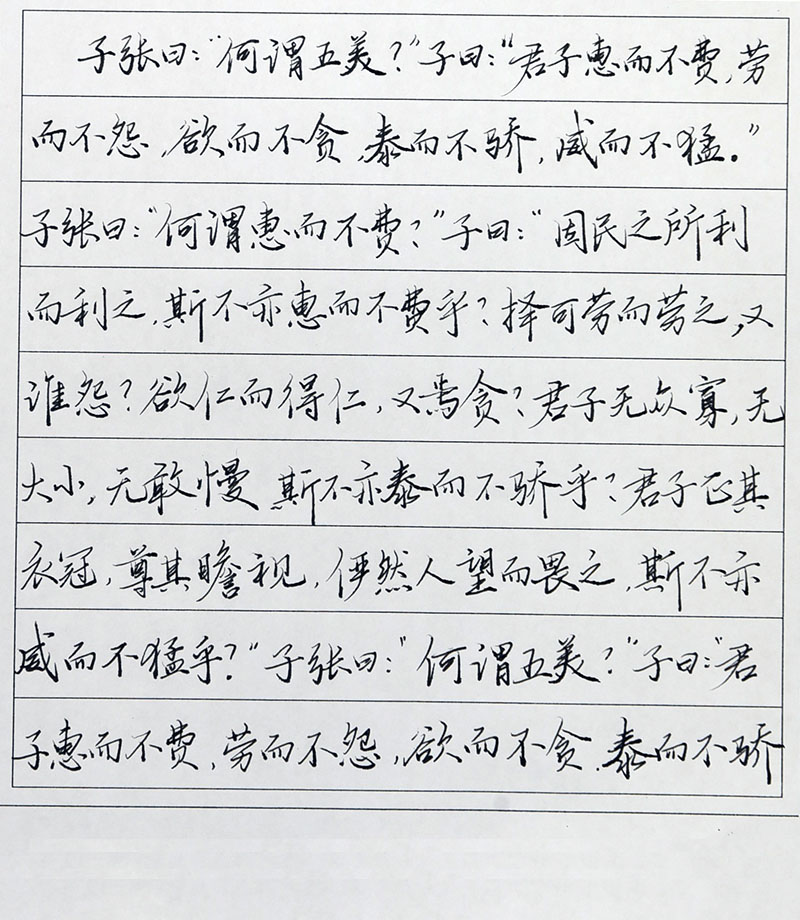 子张曰：“何谓五美？”子曰：“君子惠而不费，劳
而不怨，欲而不贪，泰而不骄，威而不猛。”
子张曰：“何谓惠而不费？”子曰：“因民之所利
而利之，斯不亦惠而不费乎？择可劳而劳之，又
谁怨？欲仁而得仁，又焉贪？君子无众寡，无
大小，无敢慢 斯不亦泰而不骄乎？君子正其
衣冠，尊其瞻视，俨然人望而畏之，斯不亦
威而不猛乎？”子张曰：“何谓五美？”子曰：“君
子惠而不费，劳而不怨，欲而不贪，泰而不骄